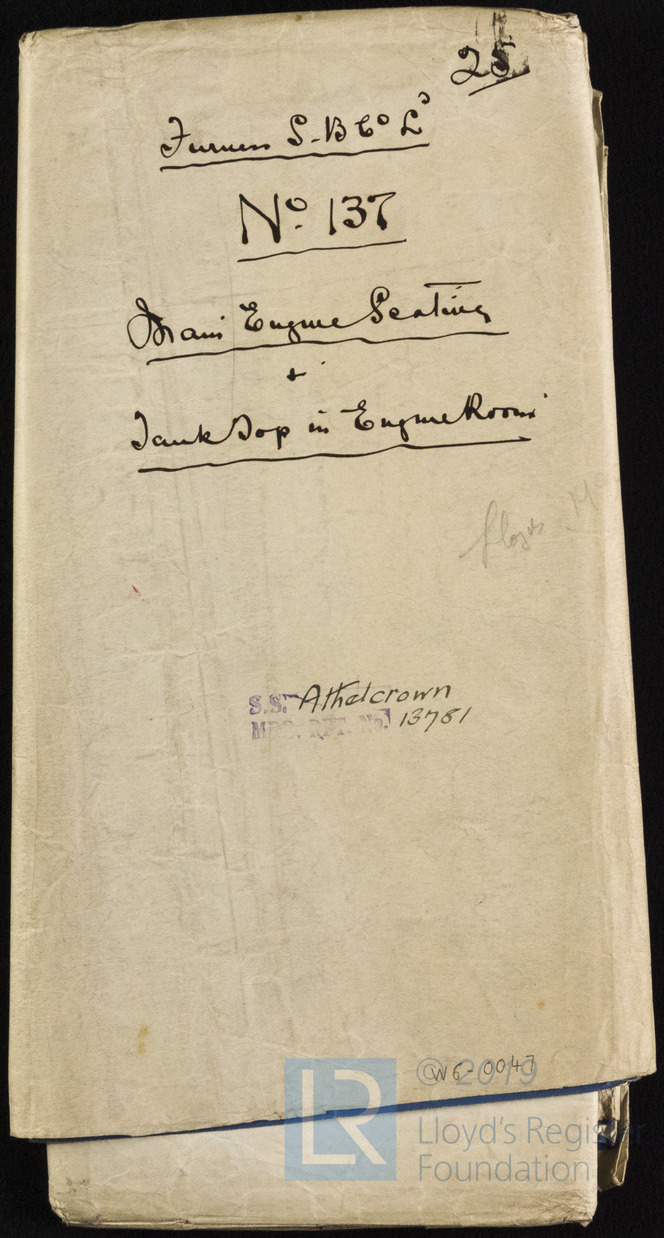 25
Furness S-B Co Ld
No. 137
Main Engine Seating
+
Tank Top in Engine Room
Lloyds
S.S. Athelcrown
MRS. RPT. No. 13781
W6-0047
© 2019
LR
Lloyd's Register
Foundation